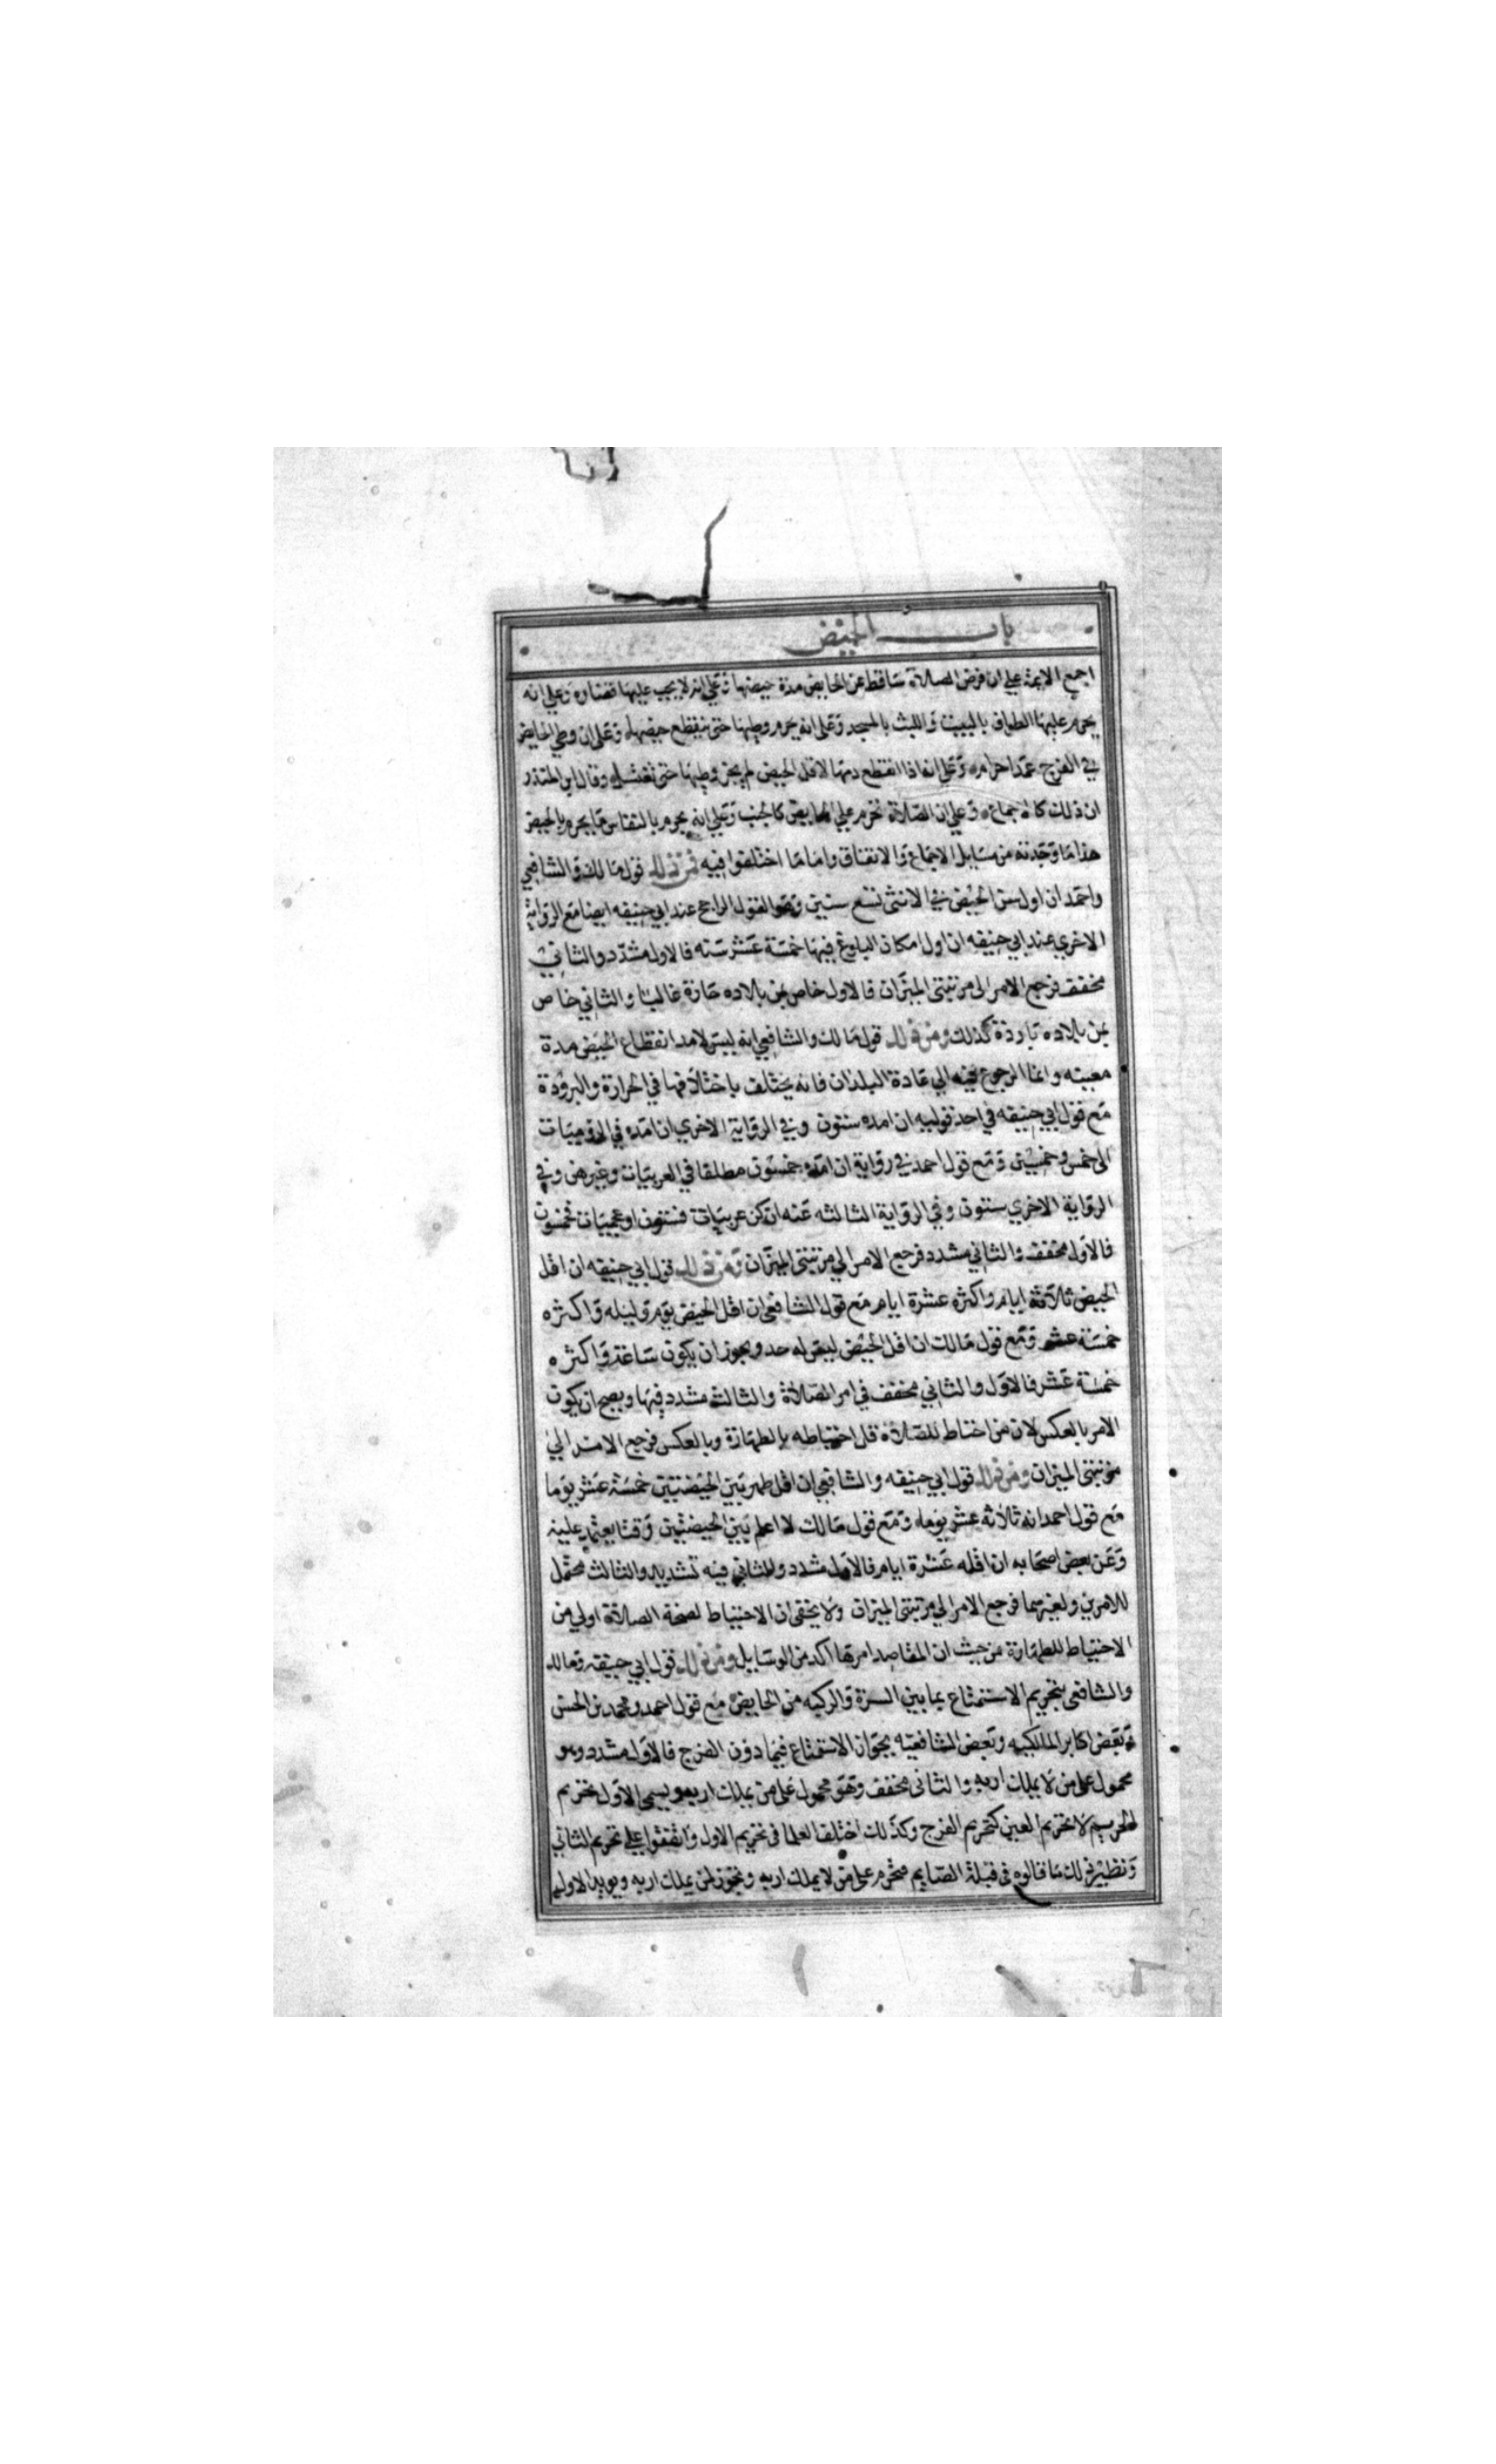 باب الحيض
اجمع الايمة علي ان فرض الصلاة ساقط عن الحايض مدة حيضها وعلي انه لا يجب عليها قضاوه وعلي انه
يحرم عليها الطواف بالبيت واللبث بالمسجد وعلى انه يحرم وطيها حتى ينقطع حيضها وعلى ان وطي الحايض
في الفرج عمدا حرام وعلي انه اذا انقطع دمها لاقل الحيض لم يجز وطيها حتى تغتسل وقال ابن المنذر
ان ذلك كالاجماع وعلي ان الصلاة تحرم علي الحايض كالجنب وعلي انه يحرم بالنفاس ما يحرم بالحيض
هذا ما وجدته من مسايل الاجماع والاتفاق واما ما اختلفوا فيه فمن ذلك قول مالك والشافعي
واحمد ان اول سن الحيض في الانثى تسع سنين وهو القول الراجح عند ابي حنيفه ايضا مع الرواية
الاخري عند ابي حنيفه ان اول امكان البلوغ فيها خمسة عشر سنه فالاول مشدد والثاني
مخفف فرجع الامر الى مرتبتى الميزان فالاول خاص بمن بلاده حارة غالبا والثاني خاص
بمن بلاده باردة كذلك ومن ذلك قول مالك والشافعي انه ليس لامد انقطاع الحيض مدة
معينه وانما الرجوع فيه الي عادة البلدان فانه يختلف باختلافها في الحرارة والبرودة
مع قول ابي حنيفه في احد قوليه ان امده ستون وفي الرواية الاخري ان امده في الروميات
الى خمس وخمسين ومع قول احمد في رواية ان امده خمسون مطلقا في العربيات وغيرهن وفي
الرواية الاخري ستون وفي الرواية الثالثه عنه ان كن عربيات فستون او عجميات فخمسون
فالاول مخفف والثاني مشدد فرجع الامر الي مرتبتى الميزان ومن ذلك قول ابي حنيفه ان اقل
الحيض ثلاثة ايام واكثره عشرة ايام مع قول الشافعى ان اقل الحيض يوم وليله واكثره
خمسة عشر ومع قول مالك ان اقل الحيض ليس له حد ويجوز ان يكون ساعة واكثره
خمسة عشر فالاول والثاني مخفف في امر الصلاة والثالث مشدد فيها ويصح ان يكون
الامر بالعكس لان من احتاط للصلاة قل احتياطه بالطهارة وبالعكس فرجع الامر الي
مرتبتى الميزان ومن ذلك قول ابي حنيفه والشافعي ان اقل طهر بين الحيضتين خمسة عشر يوما
مع قول احمد انه ثلاثة عشر يوما ومع قول مالك لا اعلم بين الحيضتين وقتا يعتمد عليه
وعن بعض اصحابه ان اقله عشرة ايام فالاول مشدد والثاني فيه تشديد والثالث محتمل
للامرين ولغيرهما فرجع الامر الي مرتبتى الميزان ولا يخفى ان الاحتياط لصحة الصلاة اولي من
الاحتياط للطهارة من حيث ان المقاصد امرها اكد من الوسايل ومن ذلك قول ابي حنيفه ومالك
والشافعى بتحريم الاستمتاع بما بين السرة والركبه من الحايض مع قول احمد ومحمد بن الحسن
وبعض اكابر المالكيه وبعض الشافعيه بجواز الاستمتاع فيما دون الفرج فالاول مشدد وهو
محمول على من لا يملك اربه والثانى مخفف وهو محمول على من يملك اربه ويسمى الاول تحريم
الحريم لا تحريم العين كتحريم الفرج وكذلك اختلف العلما فى تحريم الاول واتفقوا علي تحريم الثاني
ونظير ذلك ما قالوه فى قبلة الصايم محرم على من لا يملك اربه ويجوز لمن يملك اربه ويويد الاول